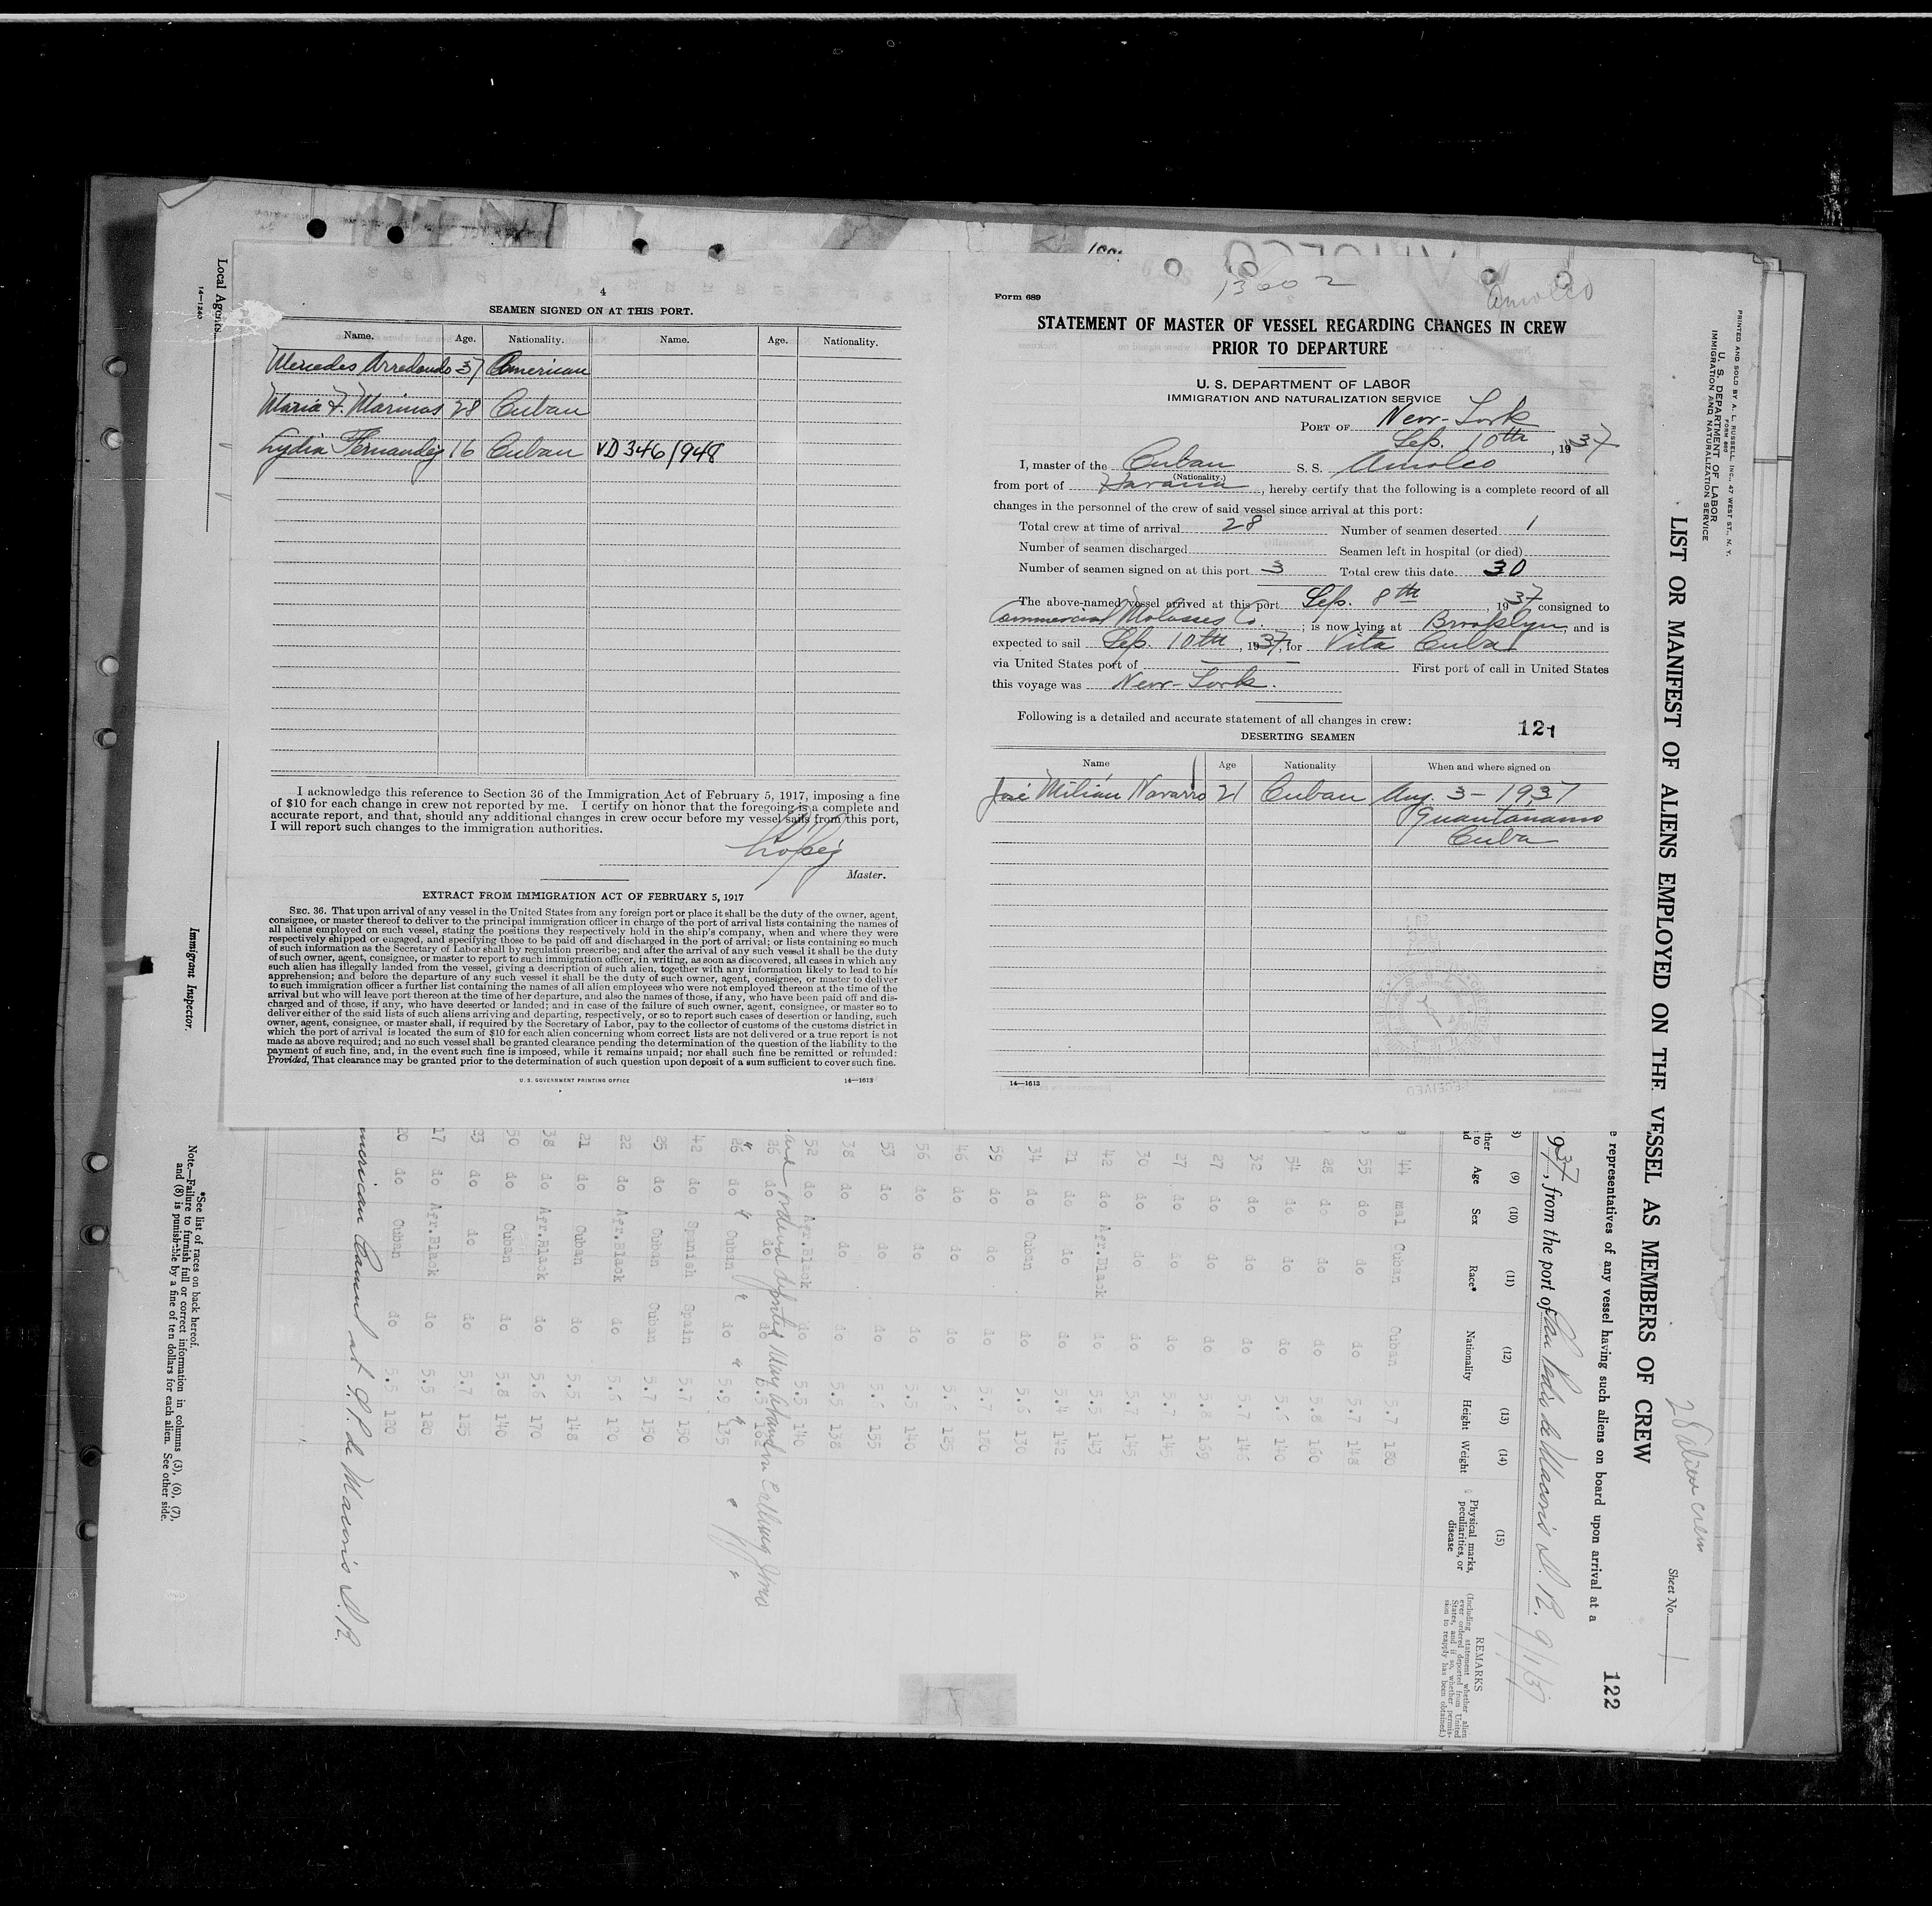 4
SEAMEN SIGNED ON AT THIS PORT.
Name. Age. Nationality. Name. Age. Nationality.
Mercedes Arredondo 37 American
Maria F. Marinas 28 Cuban
Lydia Fernandez 16 Cuban VD 346/948
I acknowledge this reference to Section 36 of the Immigration Act of February 5, 1917, imposing a fine
of $10 for each change in crew not reported by me. I certify on honor that the foregoing is a complete and
accurate report, and that, should any additional changes in crew occur before my vessel sails from this port,
I will report such changes to the immigration authorities.
Master.
EXTRACT FROM IMMIGRATION ACT OF FEBRUARY 5, 1917
SEC. 36. That upon arrival of any vessel in the United States from any foreign port or place it shall be the duty of the owner, agent,
consignee, or master thereof to deliver to the principal immigration officer in charge of the port of arrival lists containing the names of
all aliens employed on such vessel, stating the positions they respectively hold in the ship's company, when and where they were
respectively shipped or engaged, and specifying those to be paid off and discharged in the port of arrival; or lists containing so much
of such information as the Secretary of Labor shall by regulation prescribe; and after the arrival of any such vessel it shall be the duty
of such owner, agent, consignee, or master to report to such immigration officer, in writing, as soon as discovered, all cases in which any
such alien has illegally landed from the vessel, giving a description of such alien, together with any information likely to lead to his
apprehension; and before the departure of any such vessel it shall be the duty of such owner, agent, consignee, or master to deliver
to such immigration officer a further list containing the names of all alien employees who were not employed thereon at the time of the
arrival but who will leave port thereon at the time of her departure, and also the names of those, if any, who have been paid off and dis-
charged and of those, if any, who have deserted or landed; and in case of the failure of such owner, agent, consignee, or master so to
deliver either of the said lists of such aliens arriving and departing, respectively, or so to report such cases of desertion or landing, such
owner, agent, consignee, or master shall, if required by the Secretary of Labor, pay to the collector of customs of the customs district in
which the port of arrival is located the sum of $10 for each alien concerning whom correct lists are not delivered or a true report is not
made as above required; and no such vessel shall be granted clearance pending the determination of the question of the liability to the
payment of such fine, and, in the event such fine is imposed, while it remains unpaid; nor shall such fine be remitted or refunded:
Provided, That clearance may be granted prior to the determination of such question upon deposit of a sum sufficient to cover such fine.
U. S. GOVERNMENT PRINTING OFFICE 14—1613
Form 689
Amolco
STATEMENT OF MASTER OF VESSEL REGARDING CHANGES IN CREW
PRIOR TO DEPARTURE
U. S. DEPARTMENT OF LABOR
IMMIGRATION AND NATURALIZATION SERVICE
PORT OF New-York
Sep. 10th, 1937
I, master of the Cuban S. S. Amolco
(Nationality.)
from port of Havana, hereby certify that the following is a complete record of all
changes in the personnel of the crew of said vessel since arrival at this port:
Total crew at time of arrival 28 Number of seamen deserted 1
Number of seamen discharged Seamen left in hospital (or died)
Number of seamen signed on at this port 3 Total crew this date 30
The above-named vessel arrived at this port Sep. 8th, 1937 consigned to
Commercial Molasses Co.; is now lying at Brooklyn, and is
expected to sail Sep. 10th, 1937, for Vita Cuba
via United States port of First port of call in United States
this voyage was New-York.
Following is a detailed and accurate statement of all changes in crew:
121
DESERTING SEAMEN
Name Age Nationality When and where signed on
José Milián Navarro 21 Cuban Aug. 3-1937
Guantanamo
Cuba
14—1613
PRINTED AND SOLD BY A. L. RUSSELL, INC., 47 WEST ST., N. Y.
FORM 680
U. S. DEPARTMENT OF LABOR
IMMIGRATION AND NATURALIZATION SERVICE
LIST OR MANIFEST OF ALIENS EMPLOYED ON THE VESSEL AS MEMBERS OF CREW
28 alien crew
Sheet No. 1
representatives of any vessel having such aliens on board upon arrival at a
122
1937, from the port of San Pedro de Macoris D. R. 9/1/37
(9) (10) (11) (12) (13) (14) (15)
Age Sex Race* Nationality Height Weight Physical marks, peculiarities, or disease
REMARKS
(Including statement whether alien
ever ordered deported from United
States, and if so, whether permis-
sion to reapply has been obtained.)
44 mal Cuban Cuban 5.7 180
55 do do do 5.7 148
28 do do do 5.8 160
54 do do do 5.6 140
32 do do do 5.7 146
27 do do do 5.8 169
27 do do do 5.7 145
30 do do do 5.7 145
42 do Afr.Black do 5.5 143
21 do do do 5.4 142
34 do Cuban do 5.6 130
59 do do do 5.7 180
46 do do do 5.6 185
56 do do do 5.5 140
53 do do do 5.6 155
38 do do do 5.5 138
52 do Afr.Black do 5.5 140
26 do Cuban do 5.9 135
42 do Spanish Spain 5.7 150
25 do Cuban Cuban 5.7 150
22 do Afr.Black do 5.6 170
21 do Cuban do 5.5 148
38 do Afr.Black do 5.6 170
50 do Cuban do 5.8 140
23 do do do 5.7 125
17 do Afr.Black do 5.5 120
20 do Cuban do 5.5 120
American Consul at S. P. de Macoris D. R.
Local Agents
14—1240
Immigrant Inspector.
*See list of races on back hereof.
Note.—Failure to furnish full or correct information in columns (3), (6), (7),
and (8) is punishable by a fine of ten dollars for each alien. See other side.